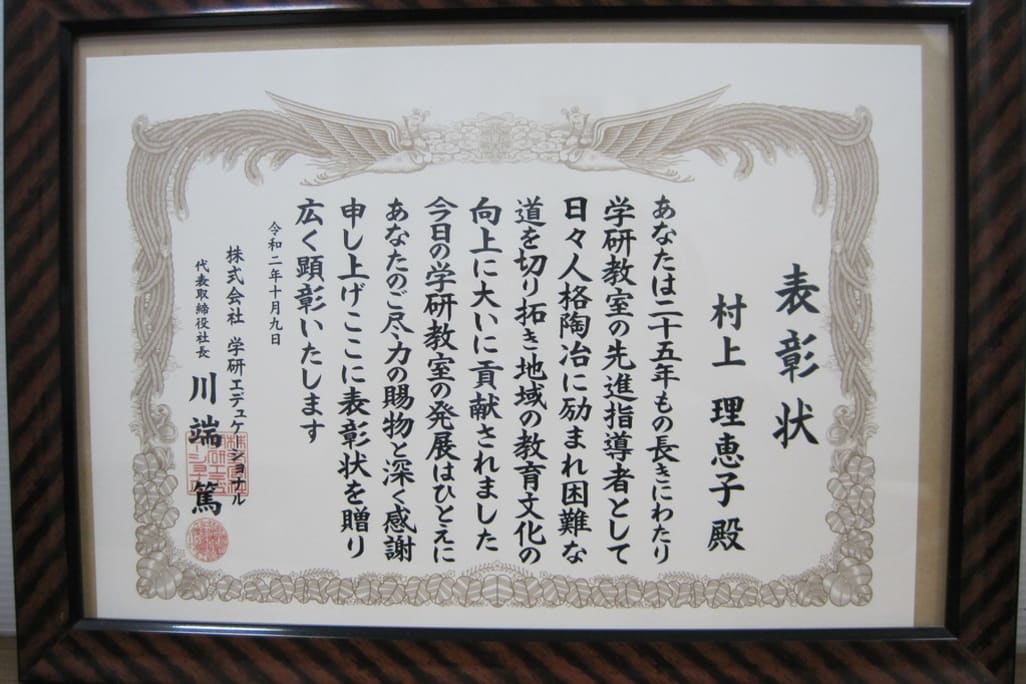 表彰状
村上 理恵子 殿
あなたは二十五年もの長きにわたり
学研教室の先進指導者として
日々人格陶冶に励まれ困難な
道を切り拓き地域の教育文化の
向上に大いに貢献されました
今日の学研教室の発展はひとえに
あなたのご尽力の賜物と深く感謝
申し上げここに表彰状を贈り
広く顕彰いたします
令和二年十月九日
株式会社 学研エデュケーショナル
代表取締役社長 川端 篤